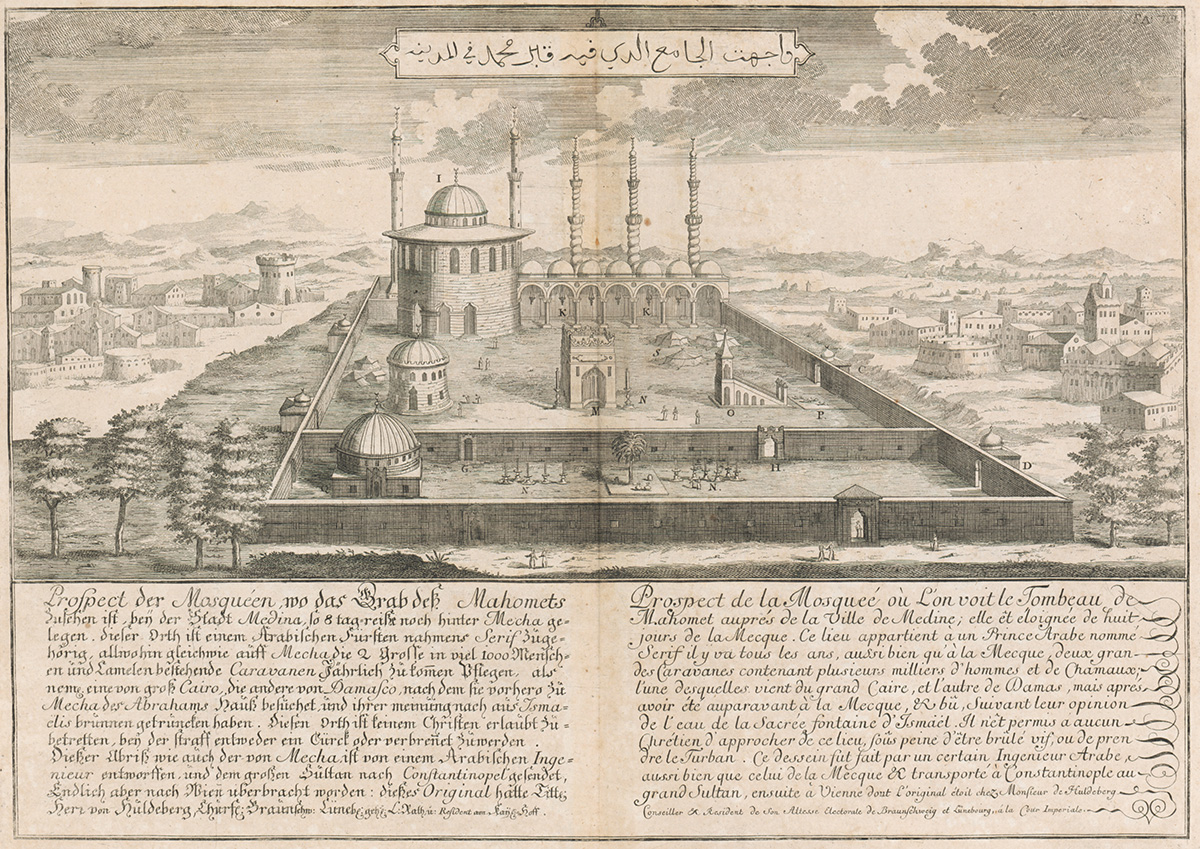 واجهت الجامع الدي فيه قبر محمد في المدينه
I
K K
S
C
M N O P
G B H D
N N
Prospect der Mosquéen, wo das Grab deß Mahomets
Zusehen ist, bey der Stadt Medina, so 8 tag reiß noch hinter Mecha ge-
legen. dieser Orth ist einem Arabischen Fürsten nahmens Serif Zuge-
hörig, allwohin gleichwie auff Mecha die 2 Grosse in viel 1000 Mensch-
en und Camelen bestehende Caravanen Jährlich zu kom̅en Pflegen, als
neml: eine von groß Cairo, die andere von Damasco, nach dem sie vorhero zu
Mecha des Abrahams Hauß besuchet, und ihrer meinung nach aus Isma-
elis brünnen getruncken haben. Diesen Orth ist keinem Christen erlaubt Zu-
betretten, bey der straff entweder ein Türck oder verbrennet Zuwerden.
Dießer Abriß wie auch der von Mecha, ist von einem Arabischen Inge-
nieur entworffen, und dem großen Sultan nach Constantinopel gesendet,
Endlich aber nach Wien überbracht worden: dießes Original hatte Titt:
Herr von Huldeberg, Churf: Braunschw: Lüneb: geh: L: Rath, u: Resident am Kaÿs: Hoff.
Prospect de la Mosqueé où L'on voit le Tombeau de
Mahomet auprès de la Ville de Medine; elle ét eloignée de huit
jours de la Mecque. Ce lieu appartient à un Prince Arabe nommé
Serif il y va tous les ans, aussi bien qu'à la Mecque, deux gran-
des Caravanes contenant plusieurs milliers d'hommes et de Chamaux;
l'une desquelles vient du grand Caire, et l'autre de Damas, mais après
avoir été auparavant à la Mecque, & bû, Suivant leur opinion
de l'eau de la Sacrée fontaine d'Ismaël. Il n'ét permis a aucun
Chrétien d'approcher de ce lieu, soûs peine d'être brûlé vif, ou de pren
dre le Turban. Ce dessein fut fait par un certain Ingenieur Arabe,
aussi bien que celui de la Mecque & transporté à Constantinople au
grand Sultan, ensuite à Vienne dont l'original étoit chez Monsieur de Huldeberg
Conseiller & Resident de Son Altesse Electorale de Braunschweig et Lünebourg, à la Cour Imperiale.